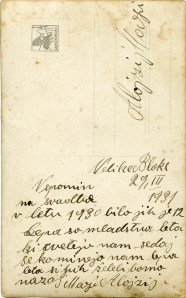 Alojzij Mazi
Velike Bloke
29, III
1931
V spomin
na svadbo
v letu 1930 bilo jih je 12
Lepa so mladitva leta
ki cvetejo nam sedaj
še ko minejo nam
leta si jih želeli bomo
nazaj Mazi Alojzij